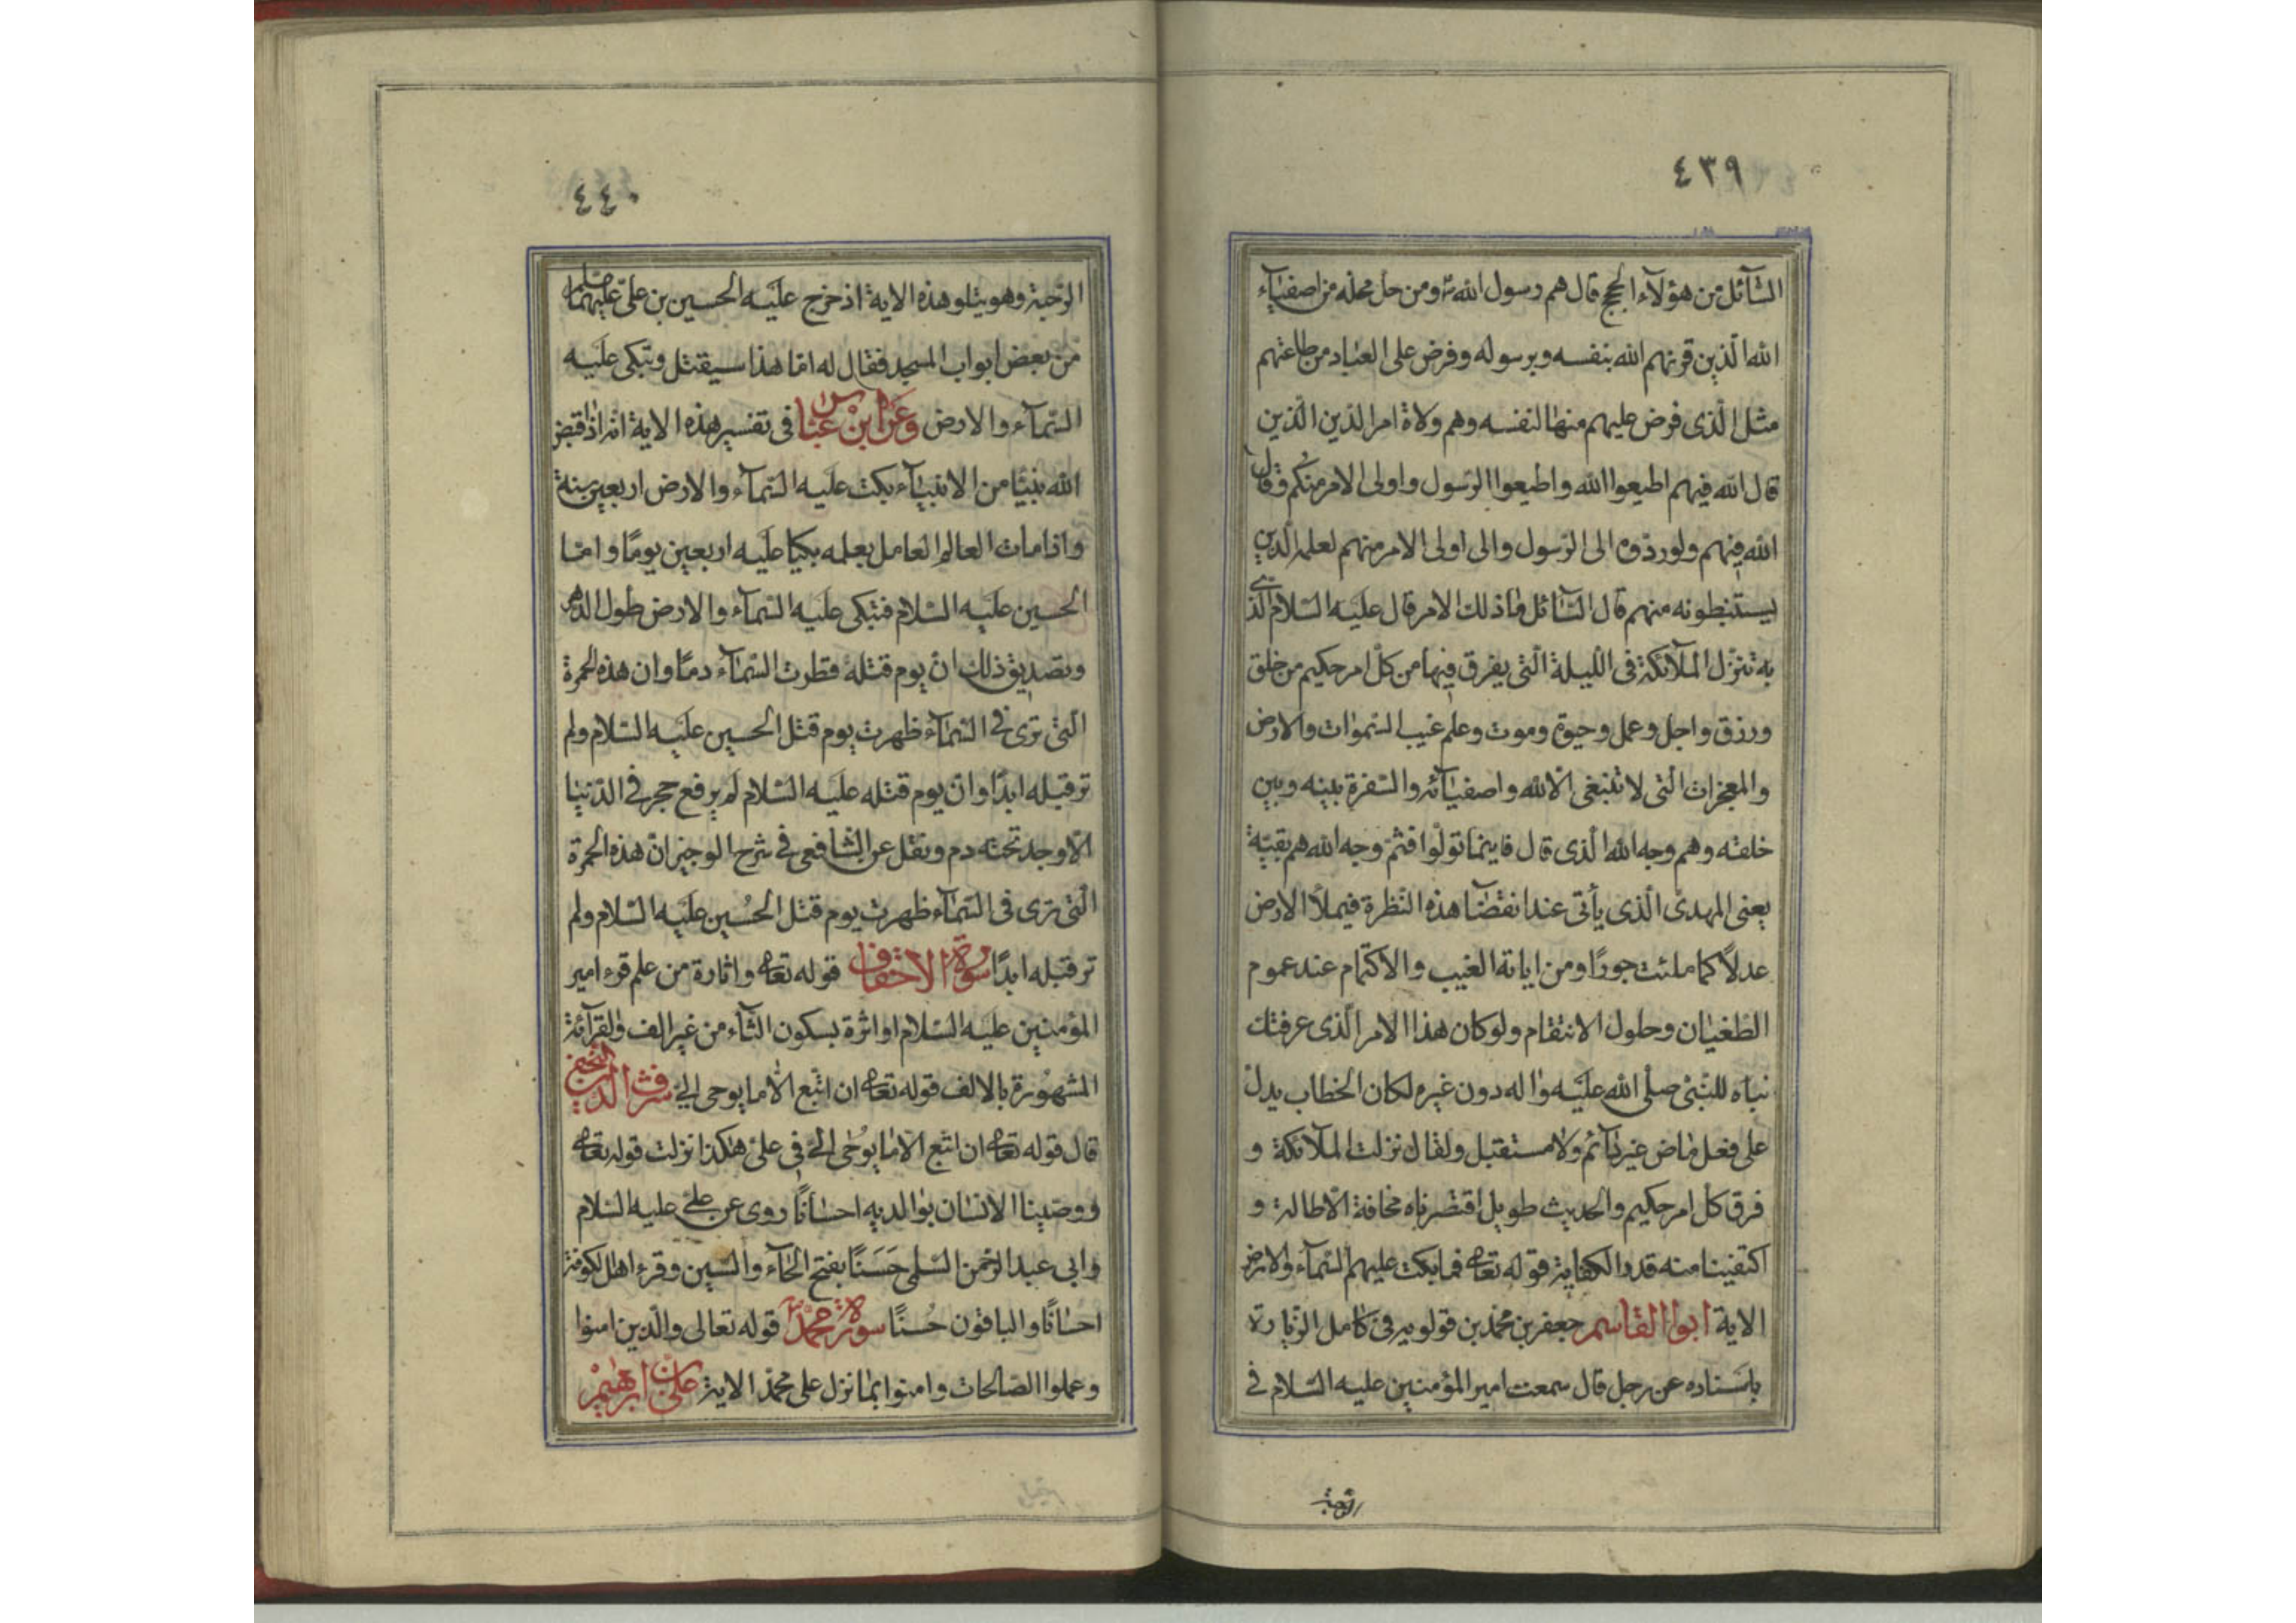 ٤٣٩
السّآئل من هؤلآء الحجج قال هم رسول الله ومن حل محله من اصفيآء
الله الّذين قرنهم الله بنفسه وبرسوله وفرض على العباد من طاعتهم
مثل الّذى فرض عليهم منها لنفسه وهم ولاة امر الدّين الّذين
قال الله فيهم اطيعوا الله واطيعوا الرّسول واولى الامر منكم وقال
الله فيهم ولو ردّوه الى الرّسول والى اولى الامر منهم لعلمه الّذين
يستنبطونه منهم قال السّآئل ما ذلك الامر قال عليه السّلام الّذى
به تنزّل الملآئكة فى اللّيلة الّتى يفرق فيها من كلّ امر حكيم من خلق
ورزق واجل وعمل وحيوة وموت وعلم غيب السّموات والارض
والمعجزات الّتى لا تنبغى الّا لله واصفيآئه والسّفرة بينه وبين
خلقه وهم وجه الله الّذى قال فاينما تولّوا فثمّ وجه الله هم بقيّة
يعنى المهدىّ الّذى يأتى عند انقضآ هذه النّظرة فيملأ الارض
عدلًا كما ملئت جورًا ومن اياته الغيب والاكتمام عند عموم
الطّغيان وحلول الانتقام ولو كان هذا الامر الّذى عرفتك
نباه للنّبىّ صلّى الله عليه واله دون غيره لكان الخطاب يدلّ
على فعل ماض غير دآئم ولا مستقبل ولقال نزلت الملآئكة و
فرق كل امر حكيم والحديث طويل اقتصرناه مخافة الاطالة و
اكتفينا منه قدر الكفاية قوله تعالى فما بكت عليهم السّمآء والارض
الاية ابوا القاسم جعفر بن محمّد بن قولويه فى كامل الزّيارة
باسناده عن رجل قال سمعت امير المؤمنين عليه السّلام فى
الرّحبة
٤٤٠
الرّحبة وهو يتلو هذه الاية اذ خرج عليه الحسين بن علىّ عليهما
من بعض ابواب المسجد فقال له امّا هذا سيقتل وتبكى عليه
السّمآء والارض وعن ابن عبّاس فى تفسير هذه الاية انّه اذا قبض
الله نبيّا من الانبيآء بكت عليه السّمآء والارض اربعين سنة
واذا مات العالم العامل بعلمه بكيا عليه اربعين يومًا وامّا
الحسين عليه السّلام فتبكى عليه السّمآء والارض طول الدّهر
وتصديق ذلك انّ يوم قتله قطرت السّمآء دمًا وان هذه الحمرة
الّتى ترى فى السّمآء ظهرت يوم قتل الحسين عليه السّلام ولم
تر قبله ابدًا وانّ يوم قتله عليه السّلام لم يرفع حجر فى الدّنيا
الّا وجد تحته دم ونقل عن الشّافعى فى شرح الوجيز انّ هذه الحمرة
الّتى ترى فى السّمآء ظهرت يوم قتل الحسين عليه السّلام ولم
تر قبله ابدًا سورة الاحقاف قوله تعالى واثارة من علم قرء امير
المؤمنين عليه السّلام او اثرة بسكون الثّآء من غير الف والقرآئة
المشهورة بالالف قوله تعالى ان اتّبع الّا ما يوحى الىّ شرف الدّين النّجفى
قال قوله تعالى ان اتّبع الّا ما يوحى الىّ فى علىّ هكذا نزلت قوله تعالى
ووصّينا الانسان بوالديه احسانًا روى عن علىّ عليه السّلام
وابى عبد الرّحمن السّلمى حَسَنًا بفتح الحآء والسّين وقرء اهل الكوفة
احسانًا والباقون حُسنًا سورة محمّد قوله تعالى والّذين امنوا
وعملوا الصّالحات وامنوا بما نزل على محمّد الاية علىّ بن ابرهيم